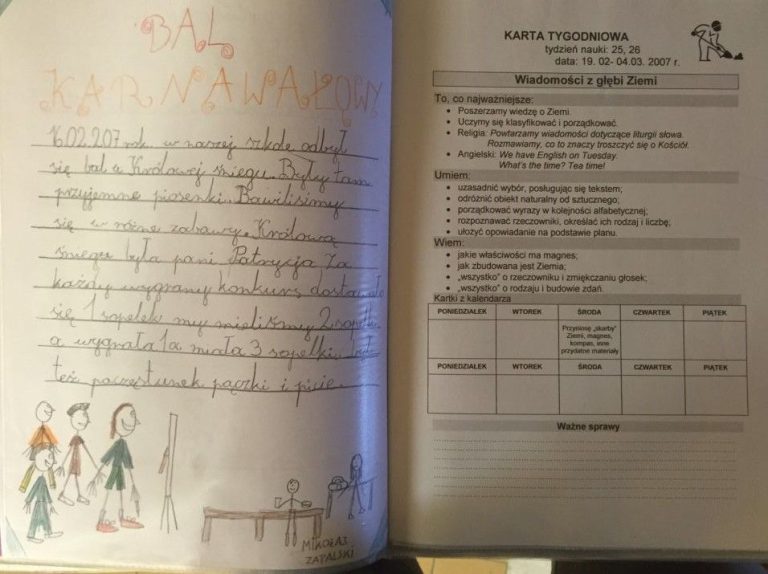 BAL
KARNAWAŁOWY
16.02.207 rok. w naszej szkole odbył
się bal u Królowej śniegu. Były tam
przyjemne piosenki. Bawiliśmy
się w różne zabawy. Królową
śniegu była pani Patrycja. Za
każdy wygrany konkurs dostawało
się 1 sopelek my mieliśmy 2 sopelki
a wygrała 1a miała 3 sopelki. był
też poczęstunek pączki i picie.
MIKOŁAJ
ZAPALSKI
KARTA TYGODNIOWA
tydzień nauki: 25, 26
data: 19. 02- 04.03. 2007 r.
Wiadomości z głębi Ziemi
To, co najważniejsze:
• Poszerzamy wiedzę o Ziemi.
• Uczymy się klasyfikować i porządkować.
• Religia: Powtarzamy wiadomości dotyczące liturgii słowa.
Rozmawiamy, co to znaczy troszczyć się o Kościół.
• Angielski: We have English on Tuesday.
What's the time? Tea time!
Umiem:
• uzasadnić wybór, posługując się tekstem;
• odróżnić obiekt naturalny od sztucznego;
• porządkować wyrazy w kolejności alfabetycznej;
• rozpoznawać rzeczowniki, określać ich rodzaj i liczbę;
• ułożyć opowiadanie na podstawie planu.
Wiem:
• jakie właściwości ma magnes;
• jak zbudowana jest Ziemia;
• „wszystko" o rzeczowniku i zmiękczaniu głosek;
• „wszystko" o rodzaju i budowie zdań.
Kartki z kalendarza
PONIEDZIAŁEK WTOREK ŚRODA CZWARTEK PIĄTEK
Przynoszę „skarby"
Ziemi, magnes,
kompas, inne
przydatne materiały
PONIEDZIAŁEK WTOREK ŚRODA CZWARTEK PIĄTEK
Ważne sprawy